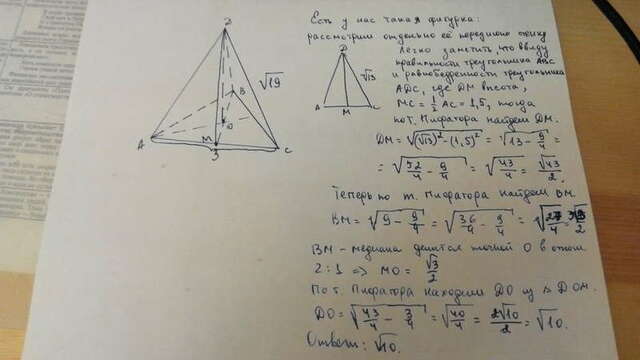 Есть у нас такая фигурка:
рассмотрим отдельно её переднюю стенку
Легко заметить, что ввиду
правильности треугольника ABC
и равнобедренности треугольника
ADC, где DM высота,
MC = 1/2 AC = 1,5, тогда
по т. Пифагора найдем DM.
DM = √((√13)² - (1,5)²) = √(13 - 9/4) =
= √(52/4 - 9/4) = √(43/4) = √43/2.
Теперь по т. Пифагора найдем BM
BM = √(9 - 9/4) = √(36/4 - 9/4) = √(27/4) = 3√3/2
BM - медиана делится точкой O в отнош
2:1 => MO = √3/2
По т. Пифагора находим DO из △ DOM.
DO = √(43/4 - 3/4) = √(40/4) = 2√10/2 = √10.
Ответ: √10.
D
√19
B
O
A
M
3
C
D
√13
A
M
C